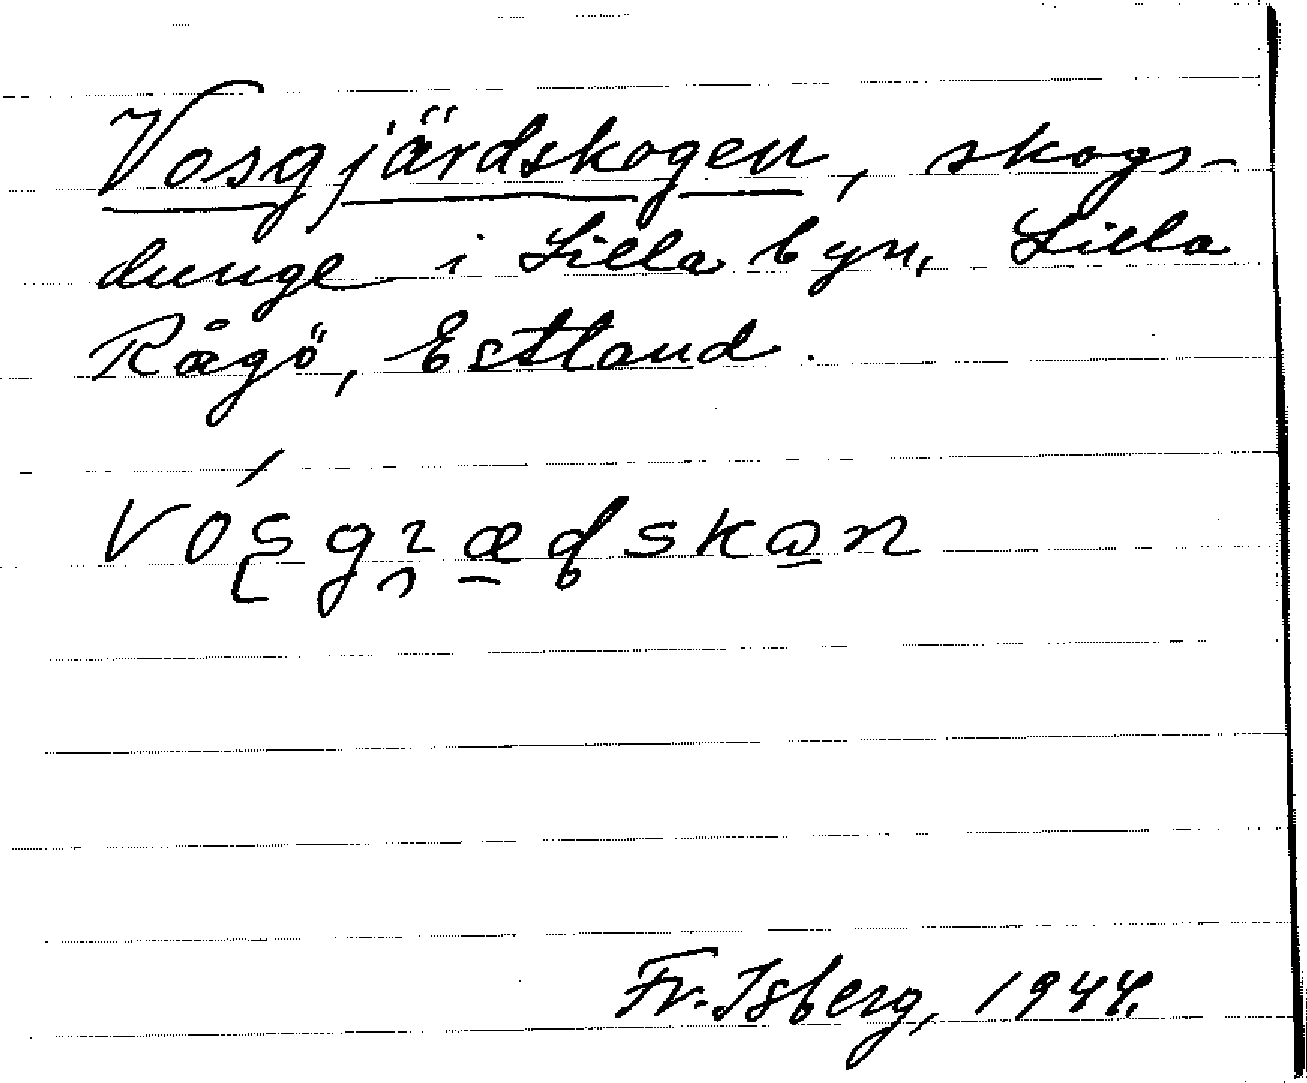 Vosgjärdskogen, skogs-
dunge i Lilla byn, Lilla
Rågö, Estland.
vo̗sgɿæ̠ɖskɷ̠n
Fr. Isberg, 1944.